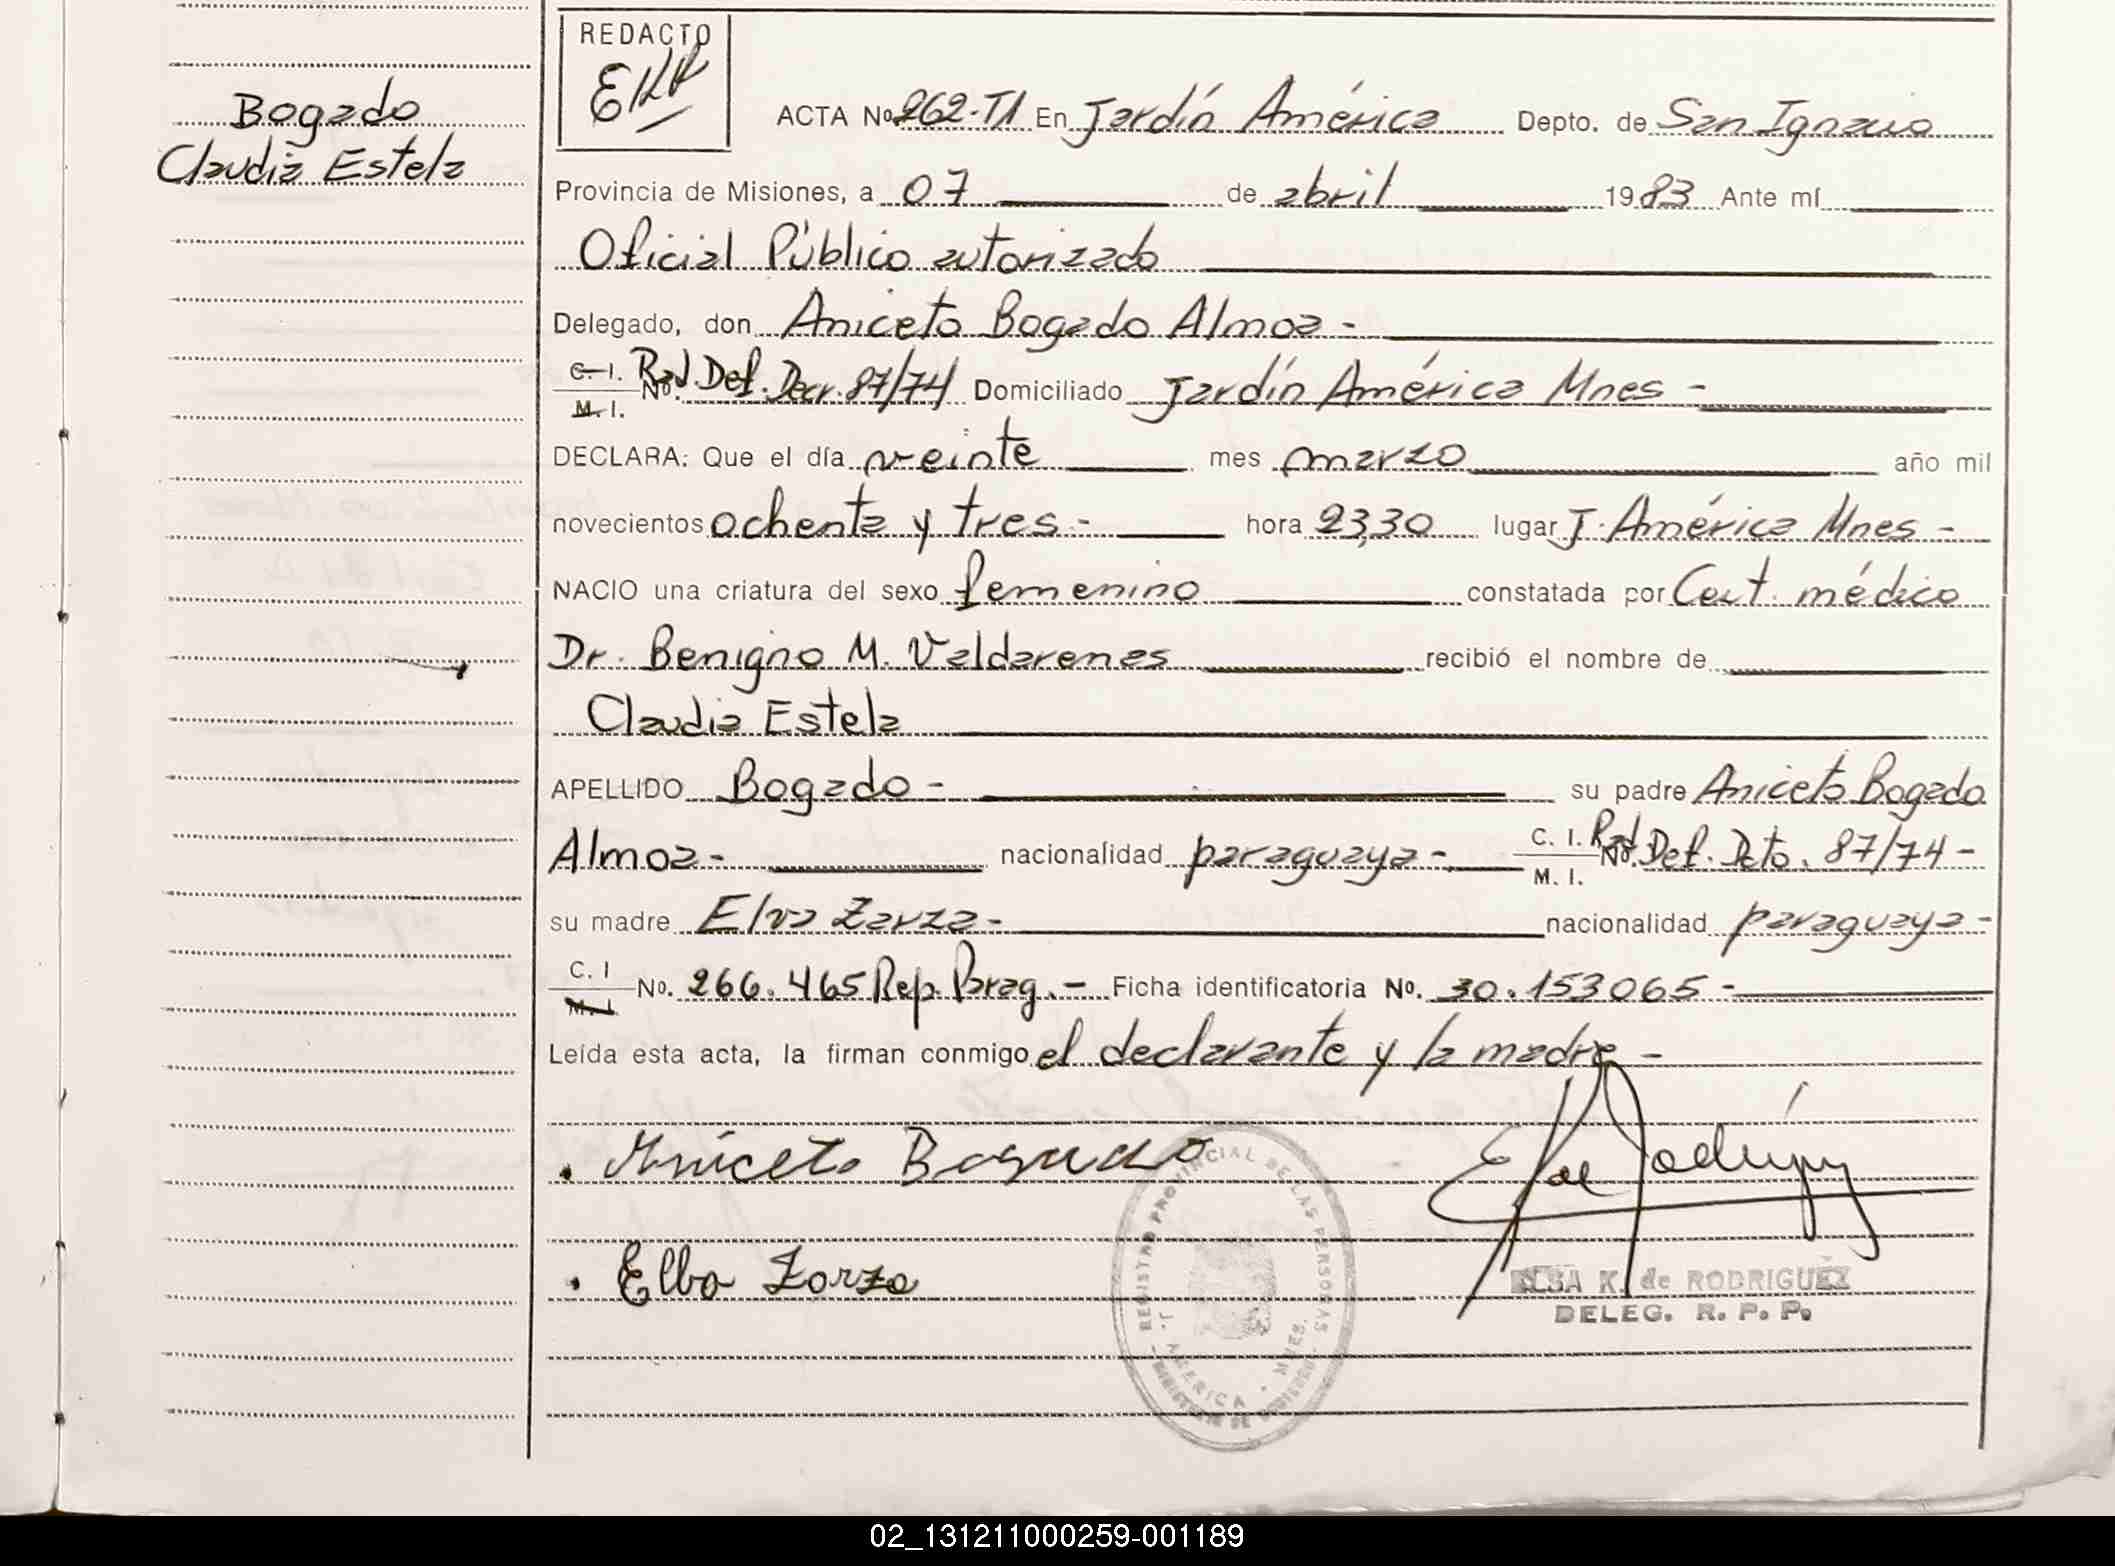 Bogado
Claudia Estela
REDACTO
EKR
ACTA No 262-T1 En Jardín América Depto. de San Ignacio
Provincia de Misiones, a 07 de abril 1983 Ante mí
Oficial Público autorizado
Delegado, don Aniceto Bogado Almoa -
C. I. M. I. No. Rad. Def. Decr. 87/74 Domiciliado Jardín América Mnes -
DECLARA: Que el día veinte mes marzo año mil
novecientos ochenta y tres.- hora 23,30 lugar J. América Mnes -
NACIO una criatura del sexo femenino constatada por Cert. médico
Dr. Benigno M. Valdarenas recibió el nombre de
Claudia Estela
APELLIDO Bogado - su padre Aniceto Bogado
Almoa - nacionalidad paraguaya - C. I. M. I. No. Rad. Def. Dcto. 87/74 -
su madre Elva Zarza - nacionalidad paraguaya -
C. I M. I. No. 266.465 Rep. Parag. - Ficha identificatoria No. 30.153065 -
Leída esta acta, la firman conmigo el declarante y la madre -
Aniceto Bogado
Elba Zarza
REGISTRO PROVINCIAL DE LAS PERSONAS
J. AMERICA - MNES.
MINISTERIO DE GOBIERNO
E K de Rodríguez
ELSA K. de RODRIGUEZ
DELEG. R. P. P.
02_131211000259-001189